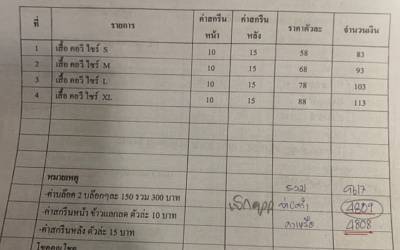 ที่ รายการ ค่าสกรีนหน้า ค่าสกรีนหลัง ราคาตัวละ จำนวนเงิน
1 เสื้อ คอวี ไซร์ S 10 15 58 83
2 เสื้อ คอวี ไซร์ M 10 15 68 93
3 เสื้อ คอวี ไซร์ L 10 15 78 103
4 เสื้อ คอวี ไซร์ XL 10 15 88 113
หมายเหตุ รวม 9617
-ค่าบล๊อค 2 บล๊อกๆละ 150 รวม 300 บาท 4809
-ค่าสกรีนหน้า ขาวแลกเลต ตัวละ 10 บาท 4808
-ค่าสกรีนหลัง ตัวละ 15 บาท